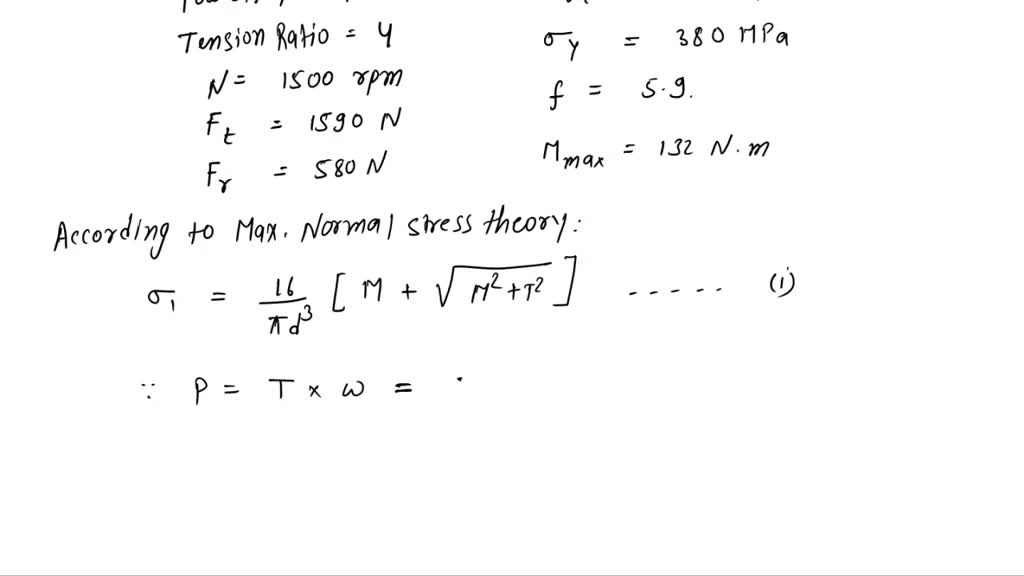 Tension Ratio = 4
N = 1500 rpm
Ft = 1590 N
Fr = 580 N
σy = 380 MPa
f = 5.9.
Mmax = 132 N.m
According to Max. Normal stress theory:
σ1 = 16/πd³ [ M + √(M² + T²) ] ..... (i)
∵ P = T × ω =